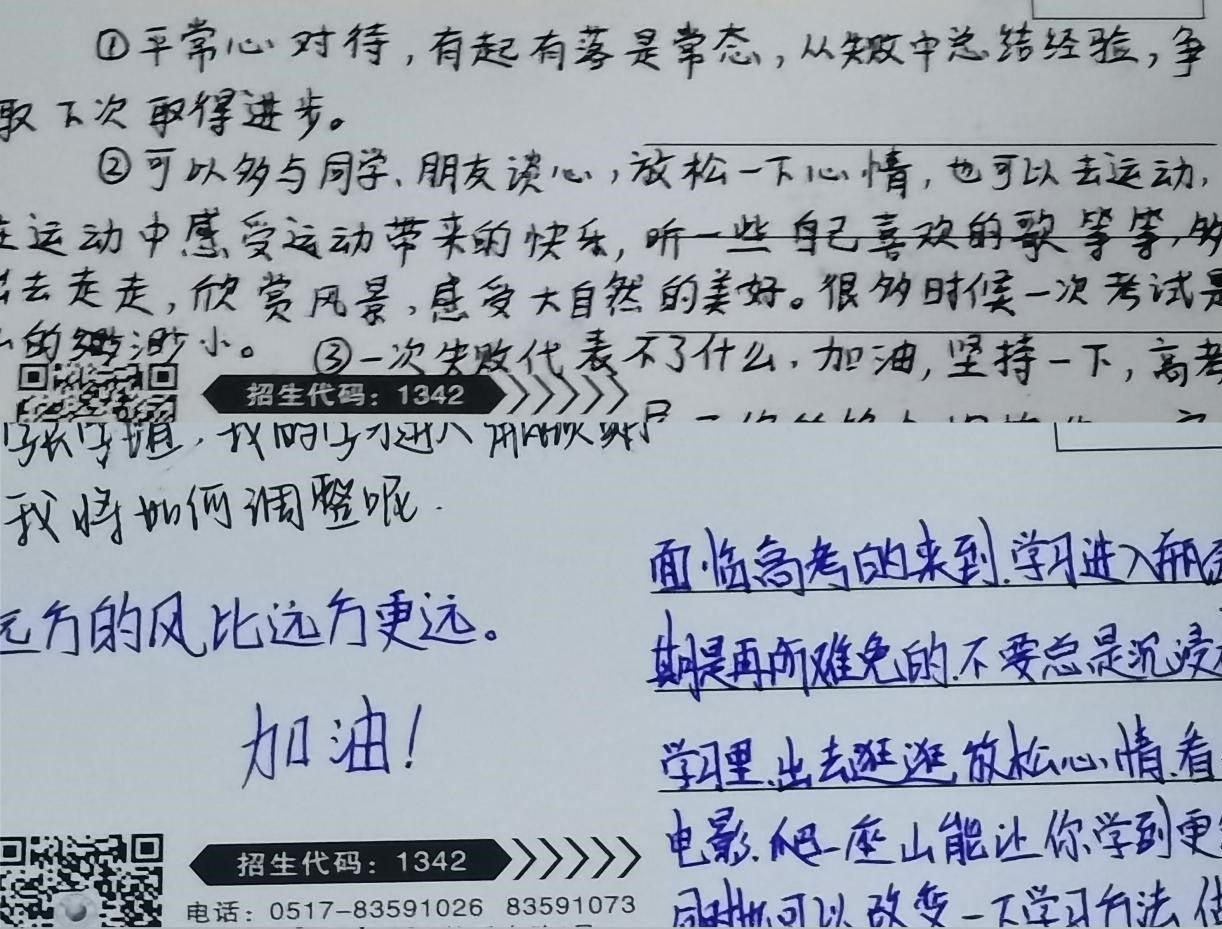 ①平常心对待,有起有落是常态,从失败中总结经验,争
取下次取得进步。
②可以多与同学、朋友谈心,放松一下心情,也可以去运动,
在运动中感受运动带来的快乐,听一些自己喜欢的歌等等,多
出去走走,欣赏风景,感受大自然的美好。很多时候一次考试是
的渺小。 ③一次失败代表不了什么,加油,坚持一下,高考
招生代码:1342
我将如何调整呢.
远方的风比远方更远。
加油!
招生代码:1342
电话:0517-83591026 83591073
面临高考的来到,学习进入瓶
期是再所难免的,不要总是沉浸
学习里,出去逛逛,放松心情,看
电影,爬一座山能让你学到更
同时也可以改变一下学习方法,